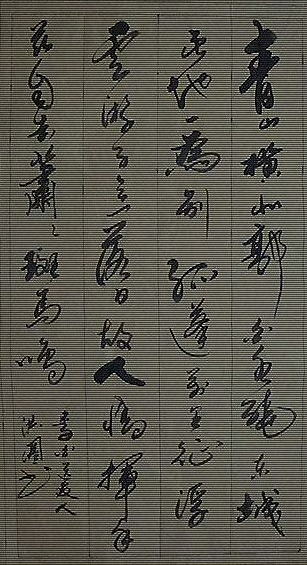 青山橫北郭白水繞東城
此地一為別孤蓬萬里征浮
雲游子意落日故人情揮手
茲自去蕭々班馬鳴
李白送友人